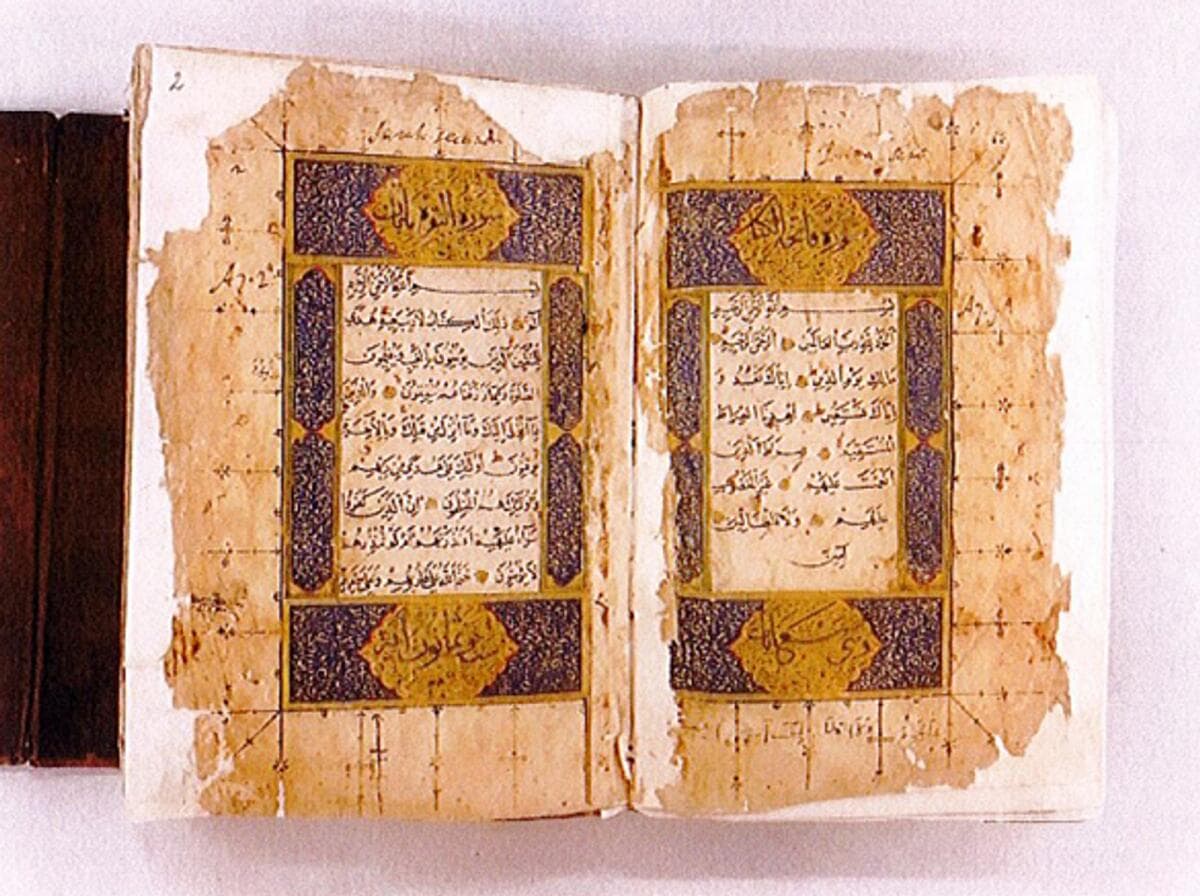 سورة فاتحة الكتاب
بسم الله الرحمن الرحيم
الحمد لله رب العالمين الرحمن الرحيم
مالك يوم الدين اياك نعبد و
اياك نستعين اهدنا الصراط
المستقيم صراط الذين
انعمت عليهم غير المغضوب
عليهم ولا الضالين
امين
سبع ايات
2
Surah secunda
سورة البقرة مائتان
بسم الله الرحمن الرحيم
الم ذلك الكتاب لا ريب فيه هدى
للمتقين الذين يؤمنون بالغيب ويقيمون
الصلوة ومما رزقناهم ينفقون والذين
بما انزل اليك وما انزل من قبلك وبالاخرة
يوقنون اولئك على هدى من ربهم
واولئك هم المفلحون ان الذين كفروا
سواء عليهم ءانذرتهم ام لم تنذرهم
لا يؤمنون ختم الله على قلوبهم وعلى سمعهم
ست وثمانون اية